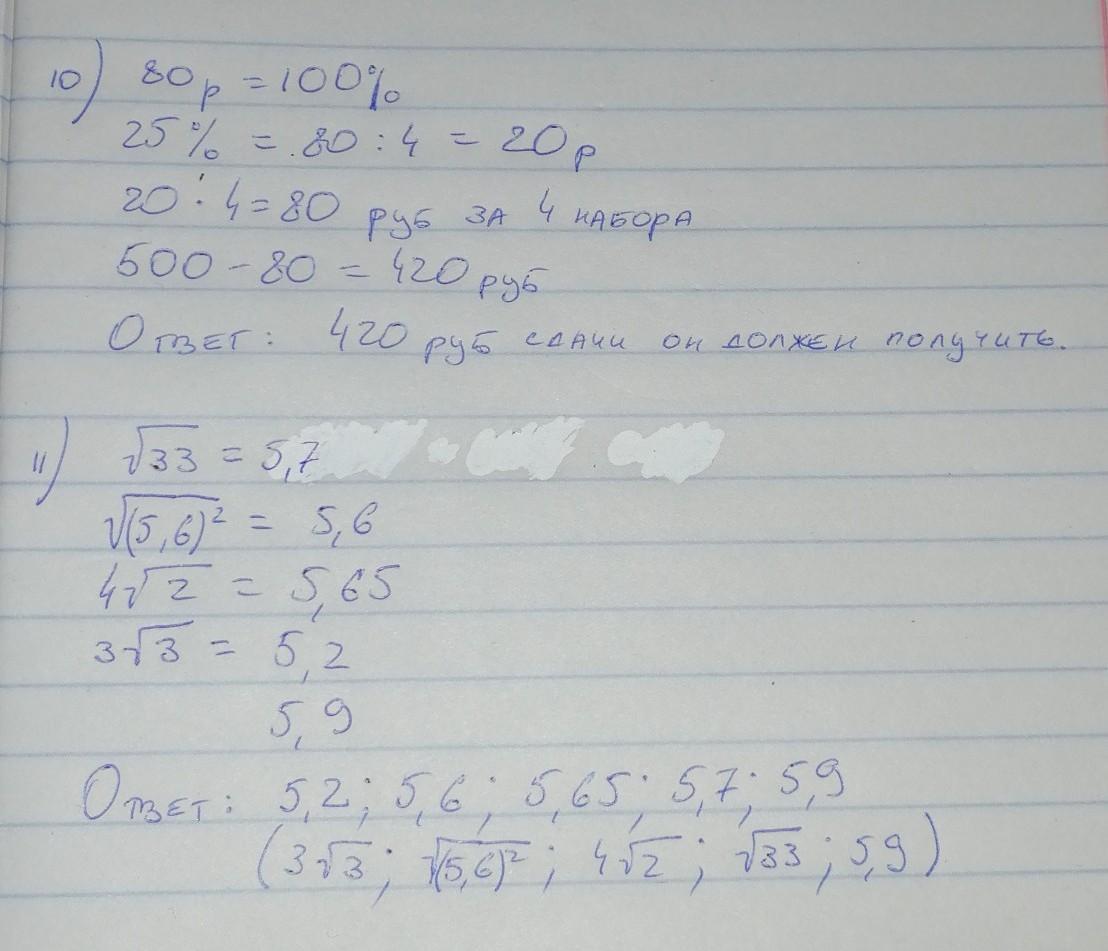 10) 80р = 100%
25% = 80 : 4 = 20р
20 · 4 = 80 руб за 4 набора
500 - 80 = 420 руб
Ответ: 420 руб сдачи он должен получить.
11) √33 = 5,7
√(5,6)² = 5,6
4√2 = 5,65
3√3 = 5,2
5,9
Ответ: 5,2; 5,6; 5,65; 5,7; 5,9
(3√3; √(5,6)²; 4√2; √33; 5,9)